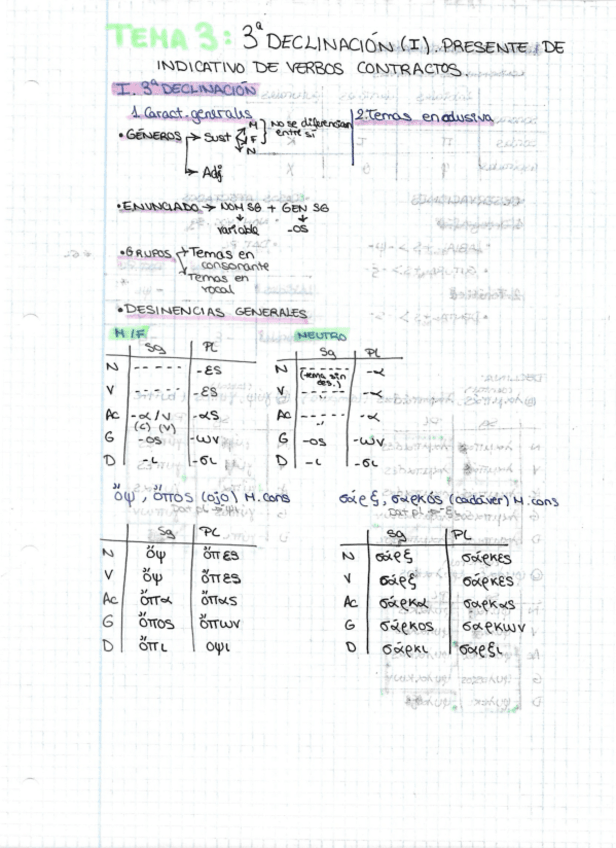 TEMA 3: 3ª DECLINACIÓN (I). PRESENTE DE
INDICATIVO DE VERBOS CONTRACTOS.
I. 3ª DECLINACIÓN
1. Caract. generales
• GÉNEROS → Sust → M F N } No se diferencian entre sí
→ Adj
2. Temas en oclusiva
• ENUNCIADO → NOM SG + GEN SG
variable -OS
• GRUPOS → Temas en consonante
→ Temas en vocal
• DESINENCIAS GENERALES
M/F
Sg PL
N ----- -ες
V ----- -ες
Ac -α/ν -ας
(C) (V)
G -os -ων
D -ι -σι
NEUTRO
Sg PL
N ----- -α
(tema sin des.)
V ----- -α
Ac ----- -α
G -os -ων
D -ι -σι
ὄψ, ὄπος (ojo) M. cons
Dat pl → ψι
Sg PL
N ὄψ ὄπες
V ὄψ ὄπες
Ac ὄπα ὄπας
G ὄπος ὄπων
D ὄπι οψι
σάρξ, σαρκός (cadáver) M. cons
Dat pl → ξ
Sg PL
N σάρξ σάρκες
V σάρξ σάρκες
Ac σάρκα σαρκας
G σάρκος σαρκων
D σάρκι σαρξι